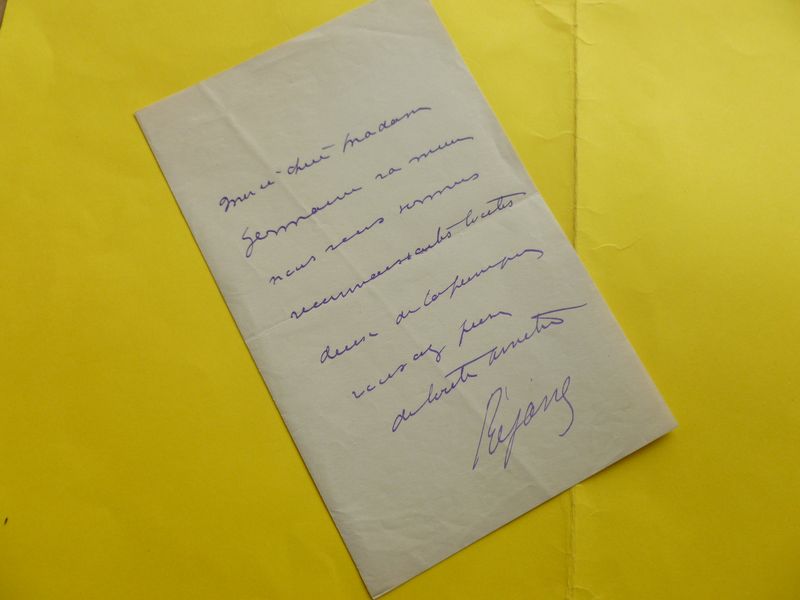 Merci chère Madame
Germaine va mieux
nous vous sommes
reconnaissantes toutes
deux de
vous
de toute
Réjane